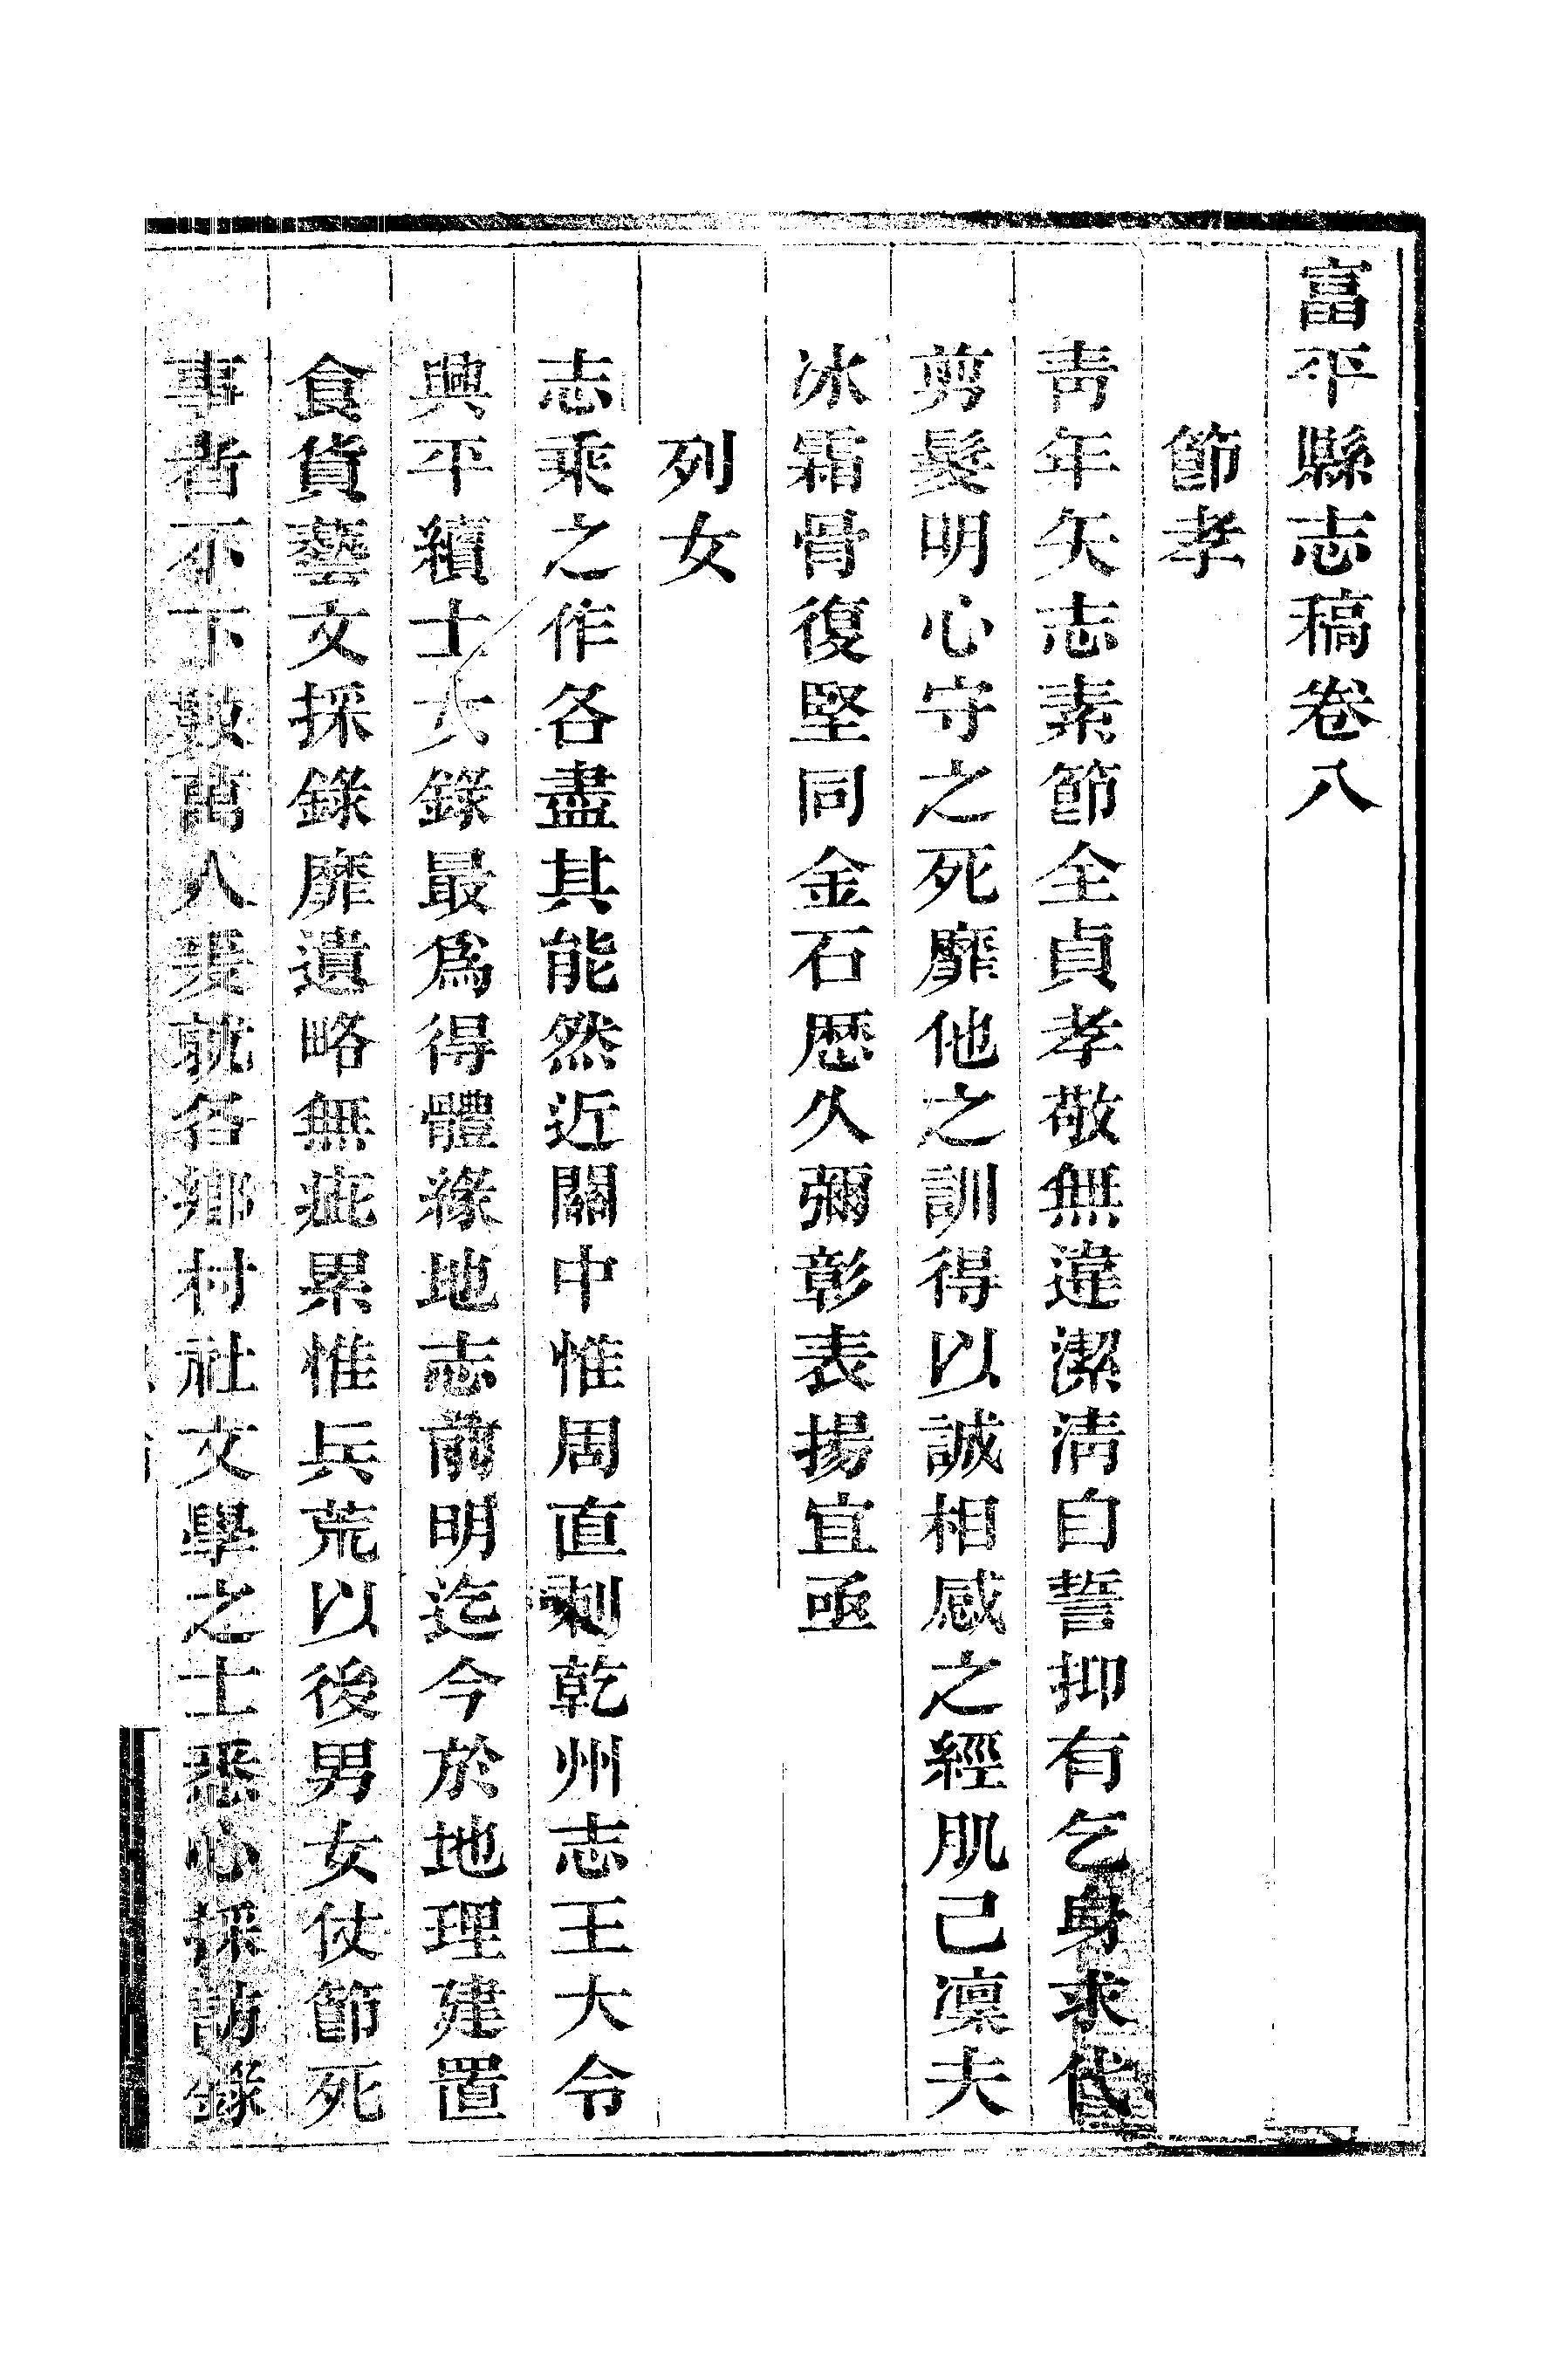 富平縣志稿卷八
節孝
青年矢志素節全貞孝敬無違潔清自誓抑有乞身求代
剪髮明心守之死靡他之訓得以誠相感之經肌已凜夫
冰霜骨復堅同金石歷久彌彰表揚宜亟
列女
志乘之作各盡其能然近關中惟周直刺乾州志王大令
興平續士女錄最爲得體緣地志前明迄今於地理建置
食貨藝文採錄靡遺略無疵累惟兵荒以後男女仗節死
事者不下數萬人裴就各鄉村社文學之士悉心採訪錄